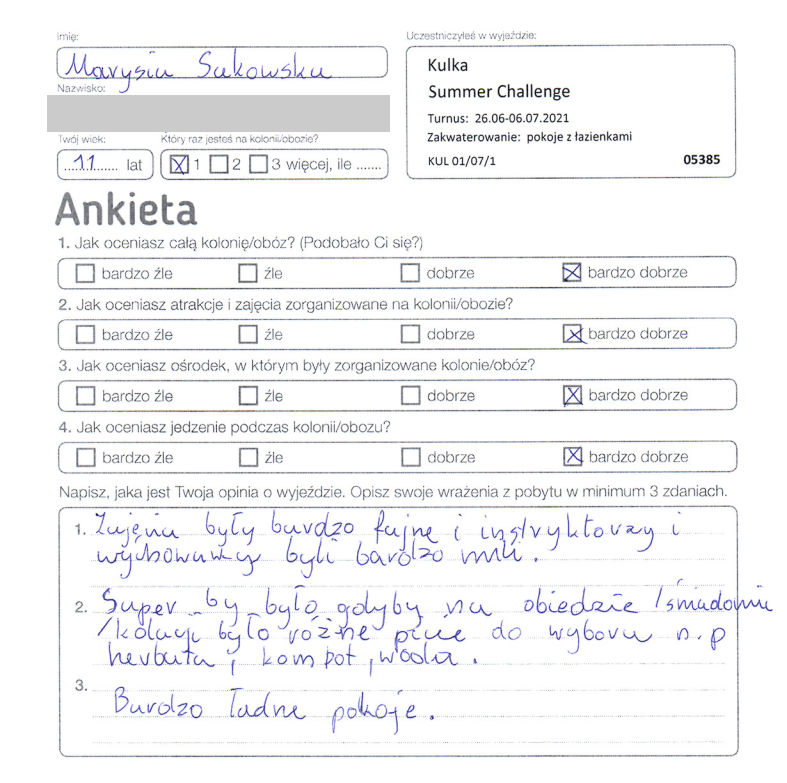 Imię:
Marysia Sakowska
Nazwisko:
Twój wiek:
11 lat
Który raz jesteś na kolonii/obozie?
1 2 3 więcej, ile .......
Uczestniczyłeś w wyjeździe:
Kulka
Summer Challenge
Turnus: 26.06-06.07.2021
Zakwaterowanie: pokoje z łazienkami
KUL 01/07/1 05385
Ankieta
1. Jak oceniasz całą kolonię/obóz? (Podobało Ci się?)
bardzo źle źle dobrze bardzo dobrze
2. Jak oceniasz atrakcje i zajęcia zorganizowane na kolonii/obozie?
bardzo źle źle dobrze bardzo dobrze
3. Jak oceniasz ośrodek, w którym były zorganizowane kolonie/obóz?
bardzo źle źle dobrze bardzo dobrze
4. Jak oceniasz jedzenie podczas kolonii/obozu?
bardzo źle źle dobrze bardzo dobrze
Napisz, jaka jest Twoja opinia o wyjeździe. Opisz swoje wrażenia z pobytu w minimum 3 zdaniach.
1. Zajęcia były bardzo fajne i instryktorzy i
wychowawcy byli bardzo mili.
2. Super by było gdyby na obiedzie /śniadaniu
/kolacji było różne picie do wyboru n.p
herbata, kompot, woda.
3.
Bardzo ładne pokoje.